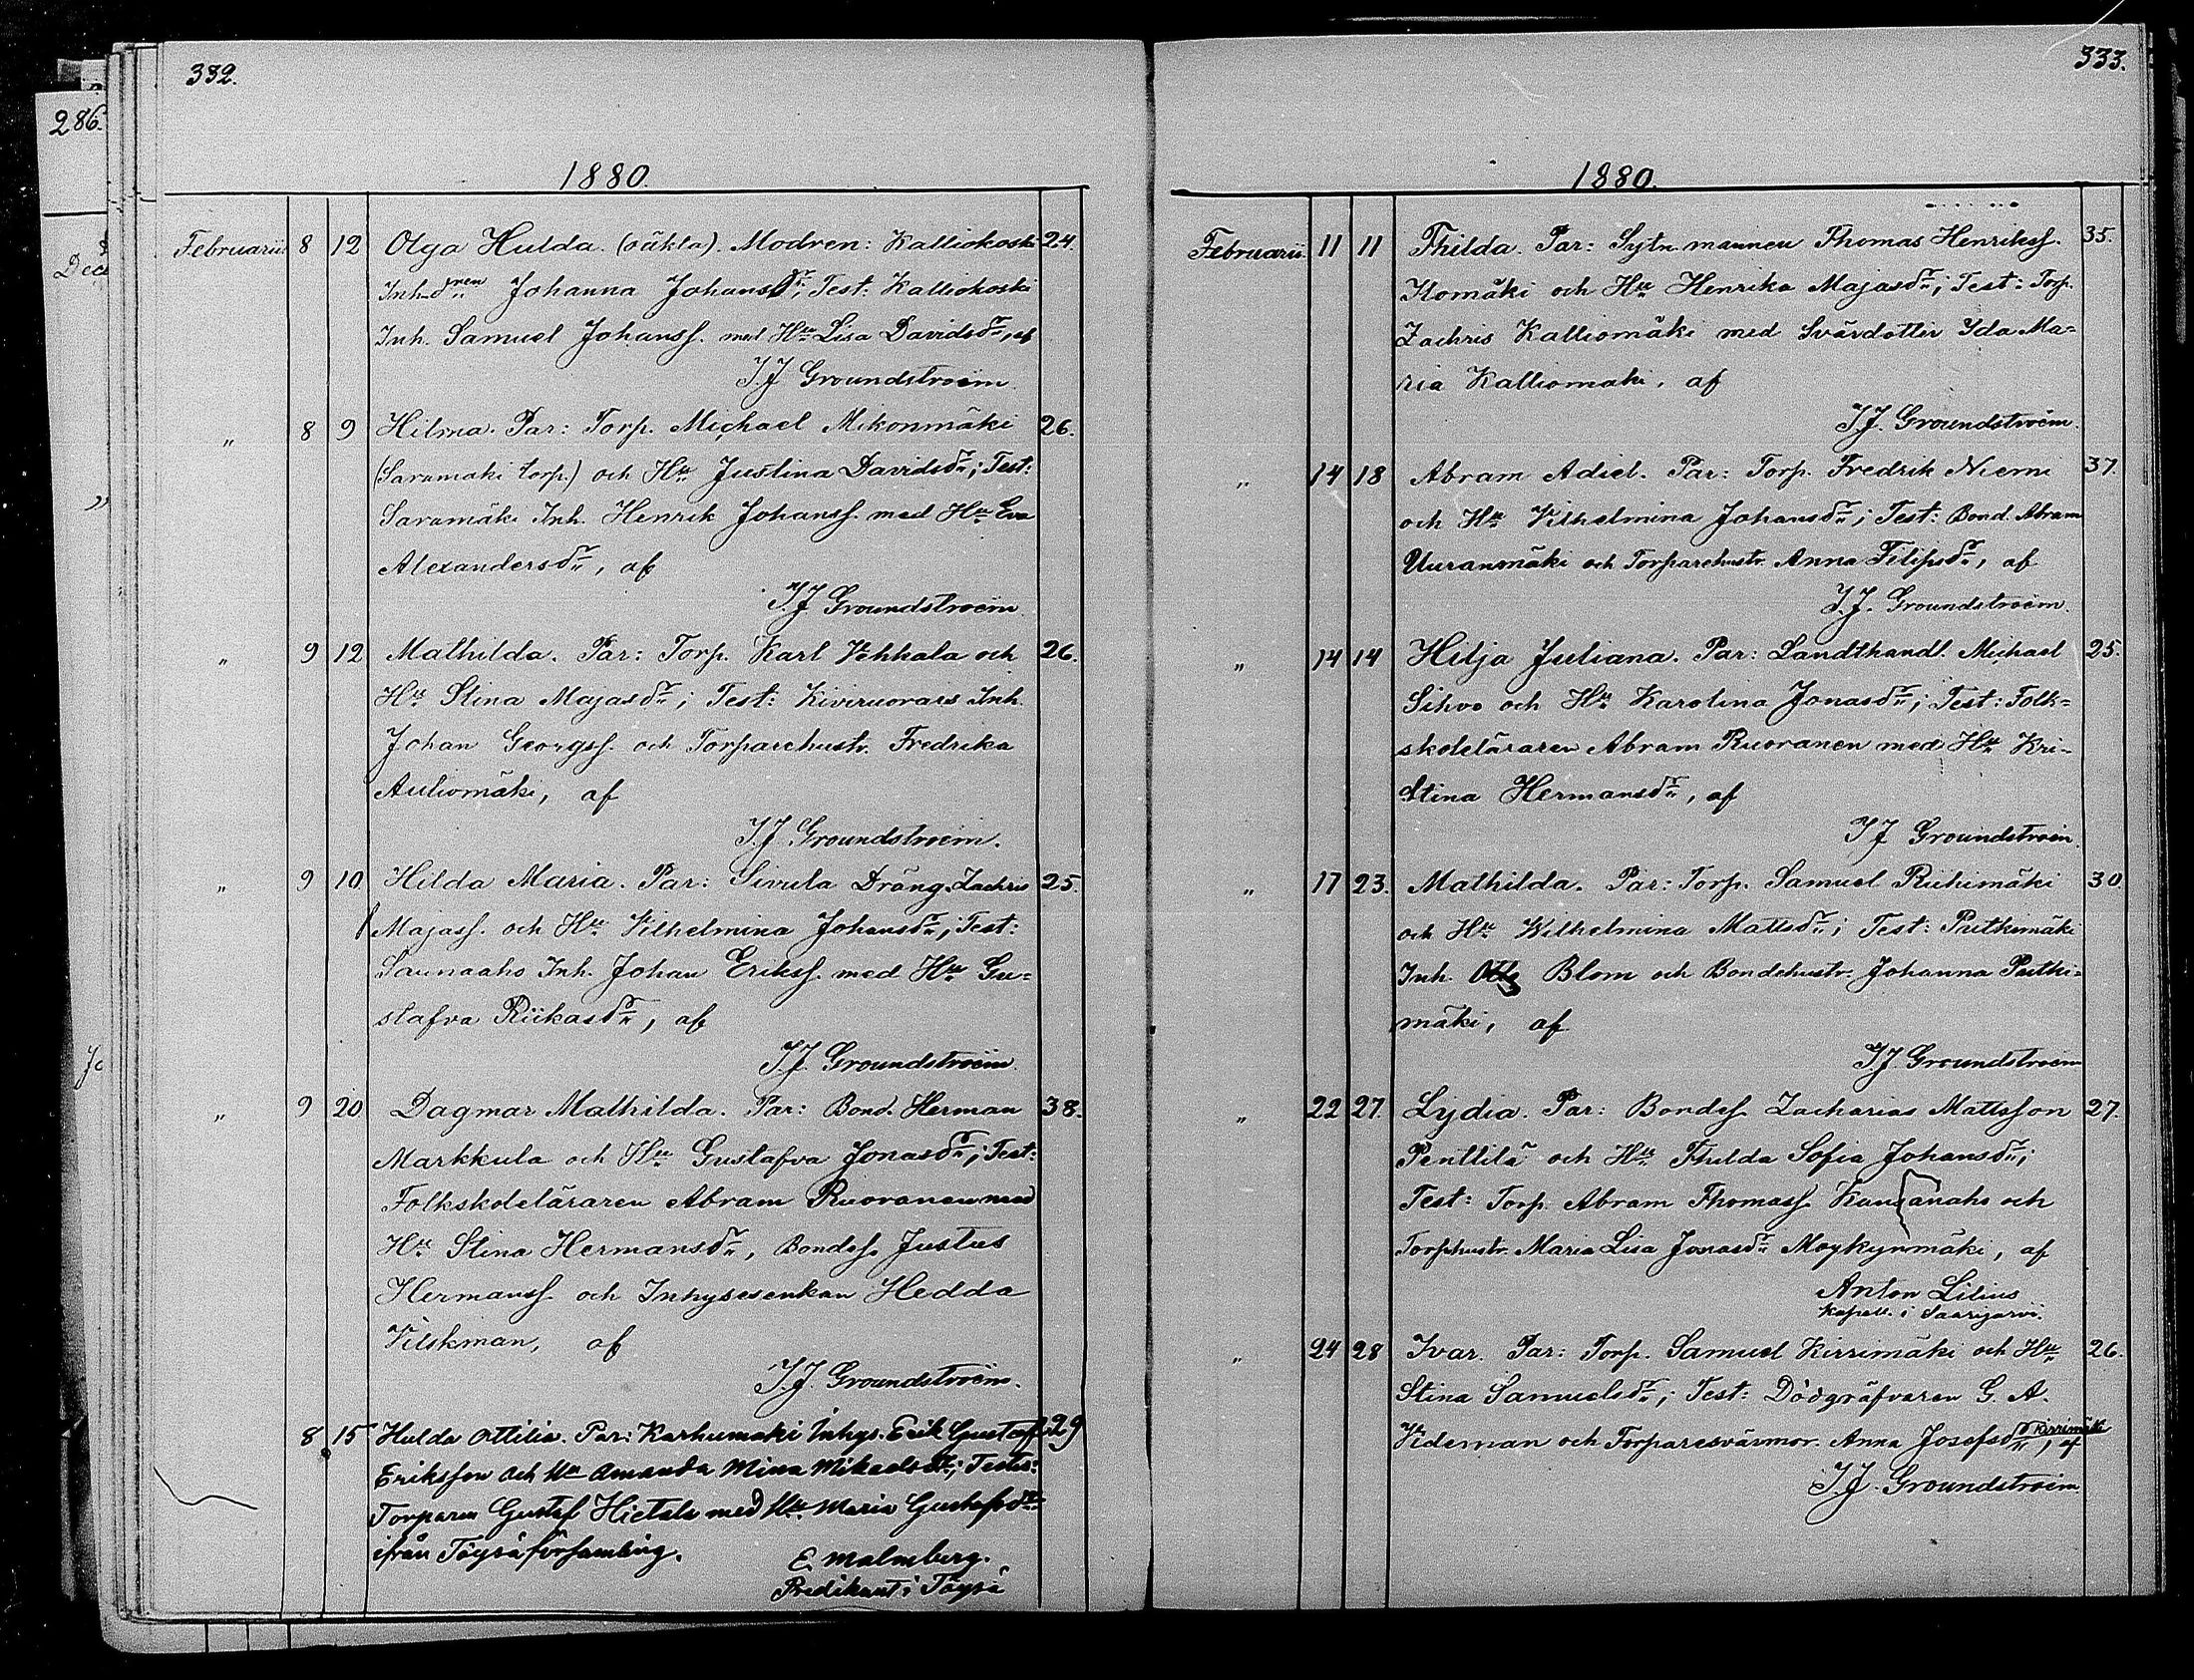 332.
286.
1880.
Februarii 8 12 Olga Hulda. (oäkta). Modren: Kalliokoski 24.
Inh.dren Johanna Johansdr; Test: Kalliokoski
Inh. Samuel Johanss. med Hu Lisa Davidsdr, af
I.J Groundstroëm.
" 8 9 Hilma. Par: Torp. Michael Mikonmäki 26.
(Saramäki torp.) och Hu Justina Davidsdr; Test:
Saramäki Inh. Henrik Johanss. med Hu Eva
Alexandersdr, af
I.J Groundstroëm
" 9 12 Mathilda. Par: Torp. Karl Vehkala och 26.
Hu Stina Majasdr; Test: Kiviruorais Inh.
Johan Georgss. och Torparehustr. Fredrika
Autiomäki, af
I.J Groundstroëm.
" 9 10. Hilda Maria. Par: Sivula Dräng. Zachris 25.
Majass. och Hu Vilhelmina Johansdr; Test:
Saunaaho Inh. Johan Erikss. med Hu Gu=
stafva Riikasdr, af
I.J. Groundstroëm.
" 9 20 Dagmar Mathilda. Par: Bond. Herman 38.
Markkula och Hu Gustafva Jonasdr; Test:
Folkskoleläraren Abram Ruoranen med
Hu Stina Hermansdr, Bondes. Justus
Hermanss. och Inhysesenkan Hedda
Vilskman, af
I.J. Groundstroëm.
8 15 Hulda Ottilia. Par: Karhumaki Inhys. Erik Gustaf 29
Eriksson och Hu Amanda Mina Mikaelsdr; Testes:
Torparen Gustaf Hietala med Hu. Maria Gustafsdr
ifrån Töysä församling.
E. Malmberg.
Predikant i Töysä
333.
1880.
Februarii. 11 11 Thilda. Par: Sytn. mannen Thomas Henrikss. 35.
Komäki och Hu Henrika Majasdr; Test: Torp.
Zachris Kalliomäki med Svärdotter Ida Ma=
ria Kalliomaki, af
I.J. Groundstroëm.
" 14 18 Abram Adiel. Par: Torp. Fredrik Niemi 37.
och Hu Vilhelmina Johansdr; Test: Bond. Abram
Uuranmäki och Torparehustr. Anna Filipsdr, af
I.J. Groundstroëm.
" 14 14 Hilja Juliana. Par: Landthandl. Michael 25.
Sihvo och Hu Karolina Jonasdr; Test: Folk=
skoleläraren Abram Ruoranen med Hu Kri=
stina Hermansdr, af
I J Groundstroëm.
" 17 23. Mathilda. Par: Torp. Samuel Riihimäki 30.
och Hu Wilhelmina Mattsdr; Test: Putkimäki
Inh. Otto Blom och Bondehustr. Johanna Putki=
mäki, af
I.J. Groundstroëm
" 22 27. Lydia. Par: Bondes. Zacharias Mattsson 27.
Penttilä och Hu Thilda Sofia Johansdr;
Test: Torp. Abram Thomass. Kangasaho och
Torphustr. Maria Lisa Jonasdr Moykynmäki, af
Anton Lilius
Kapell. i Saarijärvi.
" 24 28 Ivar. Par: Torp. Samuel Kirrimäki och Hu 26.
Stina Samuelsdr; Test: Dödgräfvaren G. A.
Videman och Torparesvärmor. Anna Josefsdr Kirrimäki, af
I.J. Groundstroëm